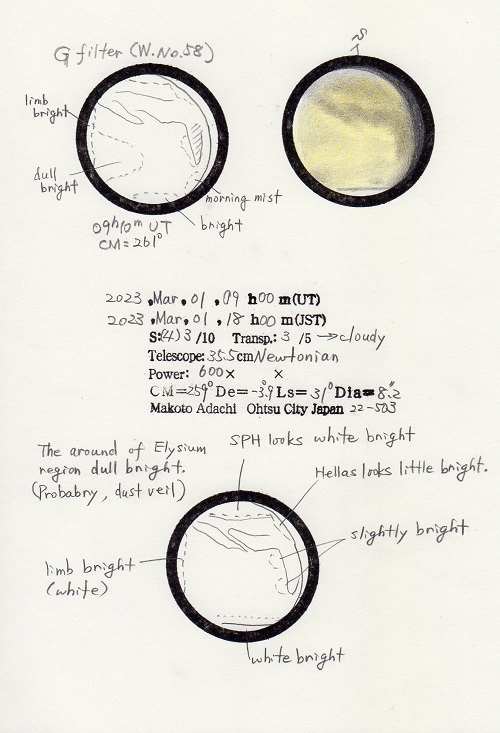 G filter (W.No.58)
S
limb
bright
dull
bright
morning mist
bright
09h10m UT
CM=261°
2023, Mar, 01, 09 h00 m(UT)
2023, Mar, 01, 18 h00 m(JST)
S:(4) 3/10 Transp.: 3 /5 →cloudy
Telescope: 35.5cm Newtonian
Power: 600× ×
CM=259° De=-3.9° Ls=31° Dia=8."2
Makoto Adachi Ohtsu City Japan 22-503
The around of Elysium
region dull bright.
(Probabry, dust veil)
SPH looks white bright
Hellas looks little bright.
slightly bright
limb bright
(white)
white bright